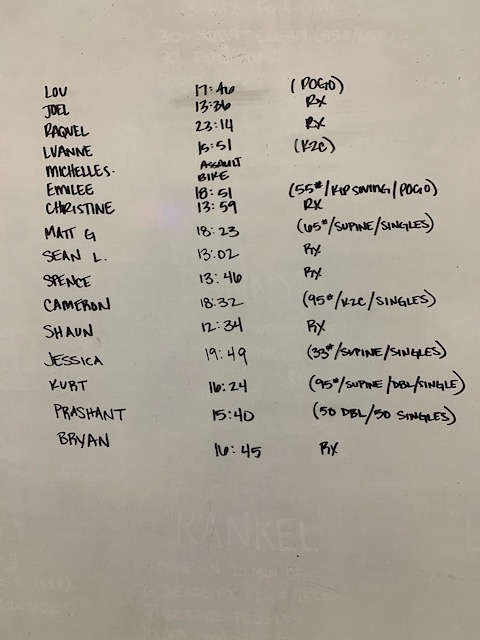 LOU 17:46 (POGO)
JOEL 13:36 RX
RAQUEL 23:14 RX
LUANNE 15:51 (K2C)
MICHELLES. ASSAULT BIKE
EMILEE 18:51 (55#/KIP SWING/POGO)
CHRISTINE 13:59 RX
MATT G 18:23 (65#/SUPINE/SINGLES)
SEAN L. 13:02 RX
SPENCE 13:46 RX
CAMERON 18:32 (95#/K2C/SINGLES)
SHAUN 12:34 RX
JESSICA 19:49 (33#/SUPINE/SINGLES)
KURT 16:24 (95#/SUPINE/DBL/SINGLE)
PRASHANT 15:40 (50 DBL/50 SINGLES)
BRYAN 16:45 RX
"RANKEL"